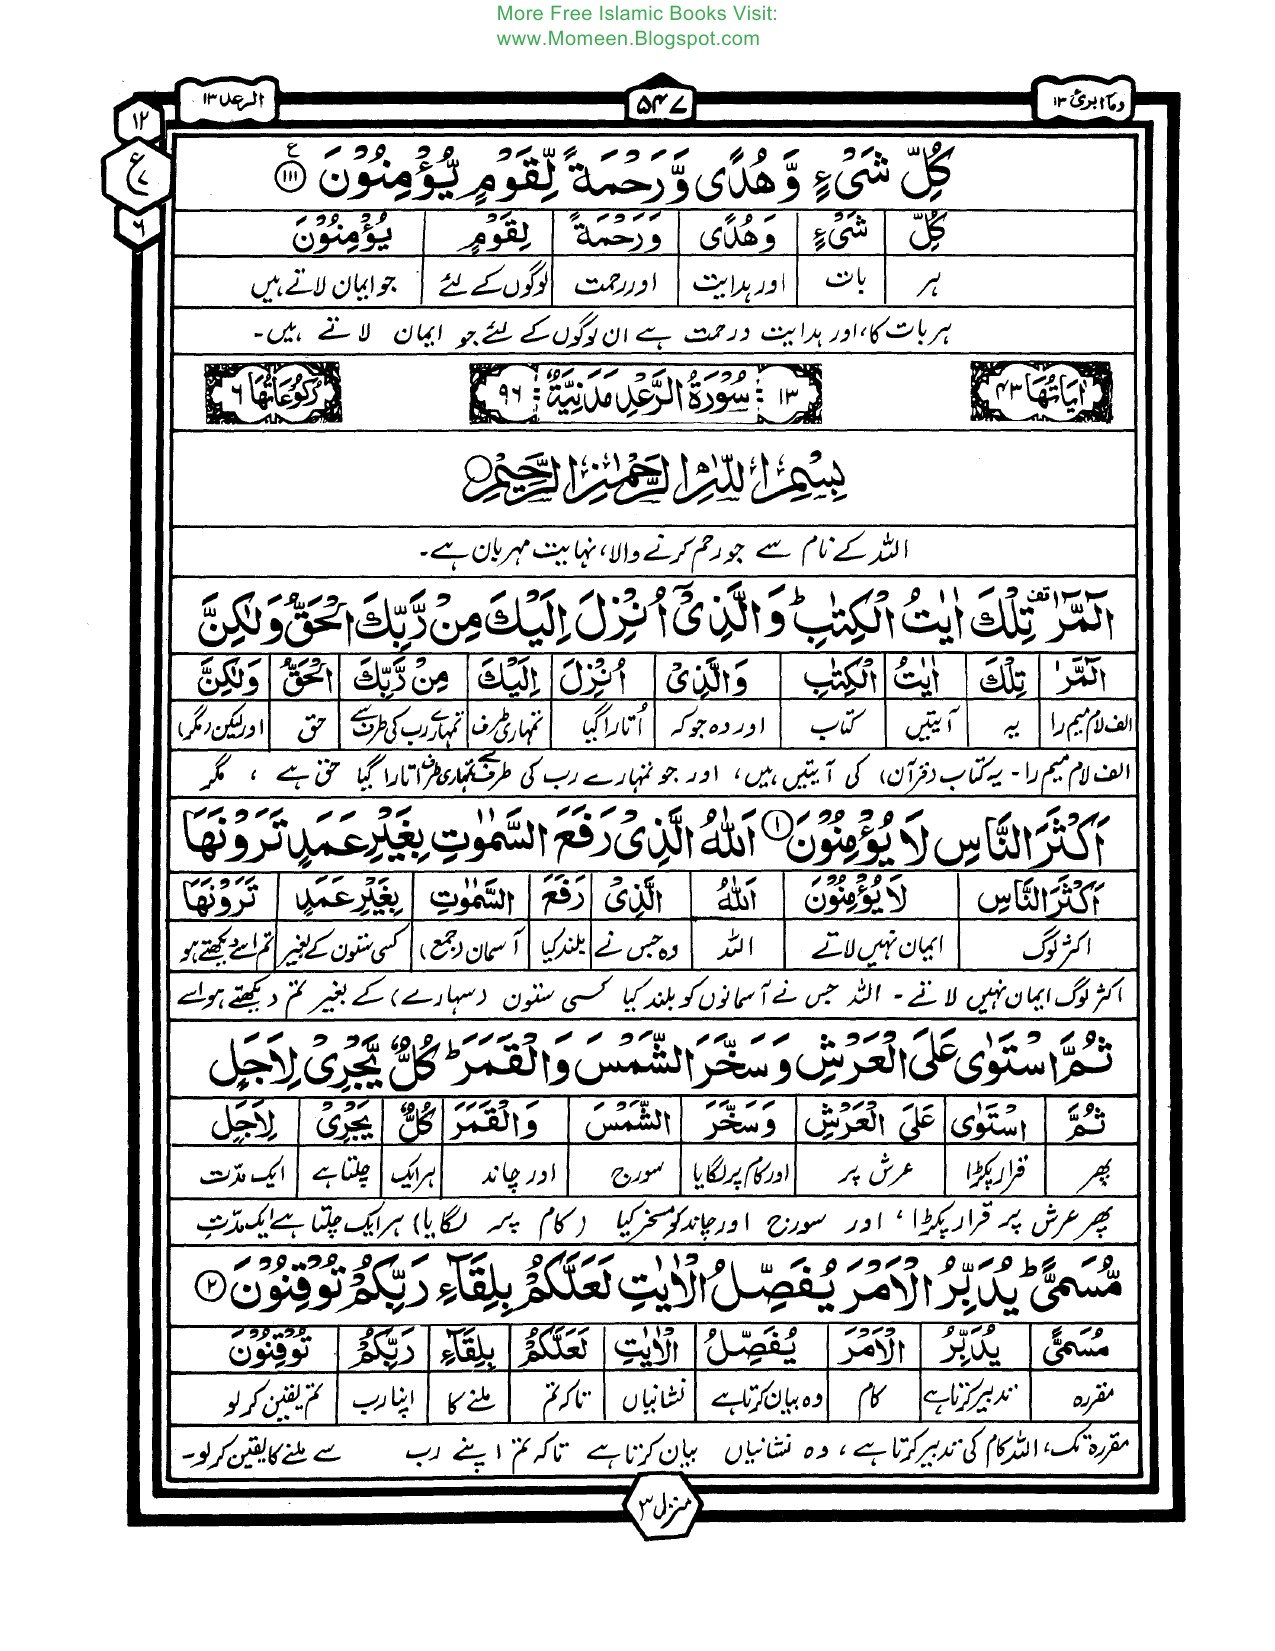 More Free Islamic Books Visit:
www.Momeen.Blogspot.com
وماابرئ ۱۳ ۵۴۷ الرعد ۱۳
۱۲
ع
۷
۶
كُلِّ شَىْءٍ وَّهُدًى وَّرَحْمَةً لِّقَوْمٍ يُّؤْمِنُوْنَ ۱۱۱ ع
كُلِّ شَىْءٍ وَهُدًى وَرَحْمَةً لِقَوْمٍ يُؤْمِنُوْنَ
ہر بات اور ہدایت اور رحمت لوگوں کے لئے جو ایمان لاتے ہیں
ہر بات کا، اور ہدایت ورحمت ہے ان لوگوں کے لئے جو ایمان لاتے ہیں۔
اٰيَاتُهَا ۴۳ ۱۳ سُوْرَةُ الرَّعْدِ مَدَنِيَّةٌ ۹۶ رُكُوْعَاتُهَا ۶
بِسْمِ اللّٰهِ الرَّحْمٰنِ الرَّحِيْمِ
اللہ کے نام سے جو رحم کرنے والا، نہایت مہربان ہے۔
الٓمّٓرٰ تِلْكَ اٰيٰتُ الْكِتٰبِ ؕ وَالَّذِىْٓ اُنْزِلَ اِلَيْكَ مِنْ رَّبِّكَ الْحَقُّ وَلٰكِنَّ
الٓمّٓرٰ تِلْكَ اٰيٰتُ الْكِتٰبِ وَالَّذِىْٓ اُنْزِلَ اِلَيْكَ مِنْ رَّبِّكَ الْحَقُّ وَلٰكِنَّ
الف لام میم را یہ آیتیں کتاب اور وہ جو کہ اُتارا گیا تمہاری طرف تمہارے رب کی طرف سے حق اور لیکن (مگر)
الف لام میم را - یہ کتاب (قرآن) کی آیتیں ہیں، اور جو تمہارے رب کی طرف سے تمہاری طرف اتارا گیا حق ہے، مگر
اَكْثَرَ النَّاسِ لَا يُؤْمِنُوْنَ ۱ اَللّٰهُ الَّذِىْ رَفَعَ السَّمٰوٰتِ بِغَيْرِ عَمَدٍ تَرَوْنَهَا
اَكْثَرَ النَّاسِ لَا يُؤْمِنُوْنَ اَللّٰهُ الَّذِىْ رَفَعَ السَّمٰوٰتِ بِغَيْرِ عَمَدٍ تَرَوْنَهَا
اکثر لوگ ایمان نہیں لاتے اللہ وہ جس نے بلند کیا آسمان (جمع) کسی ستون کے بغیر تم اسے دیکھتے ہو
اکثر لوگ ایمان نہیں لاتے - اللہ جس نے آسمانوں کو بلند کیا کسی ستون (سہارے) کے بغیر تم دیکھتے ہو اسے
ثُمَّ اسْتَوٰى عَلَى الْعَرْشِ وَسَخَّرَ الشَّمْسَ وَالْقَمَرَ ؕ كُلٌّ يَّجْرِىْ لِاَجَلٍ
ثُمَّ اسْتَوٰى عَلَى الْعَرْشِ وَسَخَّرَ الشَّمْسَ وَالْقَمَرَ كُلٌّ يَجْرِىْ لِاَجَلٍ
پھر قرار پکڑا عرش پر اور کام پر لگایا سورج اور چاند ہر ایک چلتا ہے ایک مدّت
پھر عرش پر قرار پکڑا، اور سورج اور چاند کو مسخر کیا (کام پر لگایا) ہر ایک چلتا ہے ایک مدّتِ
مُّسَمًّى ؕ يُدَبِّرُ الْاَمْرَ يُفَصِّلُ الْاٰيٰتِ لَعَلَّكُمْ بِلِقَآءِ رَبِّكُمْ تُوْقِنُوْنَ ۲
مُسَمًّى يُدَبِّرُ الْاَمْرَ يُفَصِّلُ الْاٰيٰتِ لَعَلَّكُمْ بِلِقَآءِ رَبِّكُمْ تُوْقِنُوْنَ
مقررہ تدبیر کرتا ہے کام وہ بیان کرتا ہے نشانیاں تاکہ تم ملنے کا اپنا رب تم یقین کر لو
مقررہ تک، اللہ کام کی تدبیر کرتا ہے، وہ نشانیاں بیان کرتا ہے تاکہ تم اپنے رب سے ملنے کا یقین کر لو۔
منزل ۳